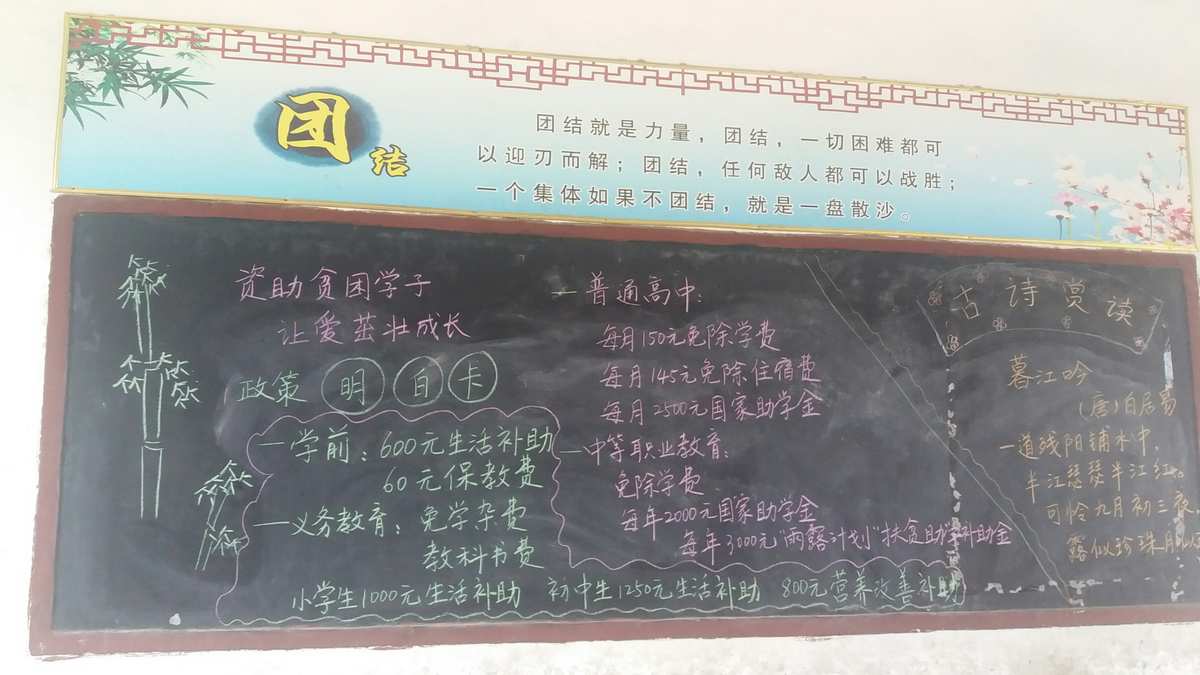 团结
团结就是力量，团结，一切困难都可
以迎刃而解；团结，任何敌人都可以战胜；
一个集体如果不团结，就是一盘散沙。
资助贫困学子
让爱茁壮成长
政策明白卡
一学前：600元生活补助
60元保教费
一义务教育：免学杂费
教科书费
小学生1000元生活补助 初中生1250元生活补助 800元营养改善补助
一普通高中：
每月150元免除学费
每月145元免除住宿费
每月2500元国家助学金
一中等职业教育：
免除学费
每年2000元国家助学金
每年3000元"雨露计划"扶贫助学补助金
古诗赏读
暮江吟
(唐)白居易
一道残阳铺水中，
半江瑟瑟半江红。
可怜九月初三夜
露似珍珠月似